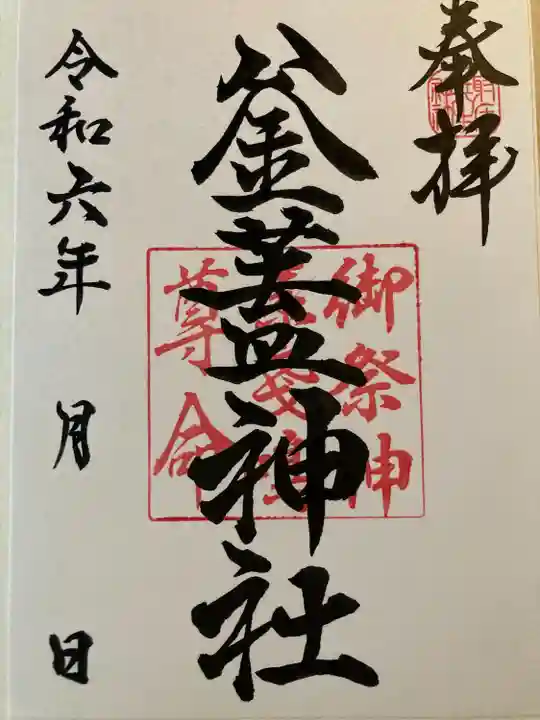 奉拝
釜蓋神社
御祭神
尊命
令和六年 月 日